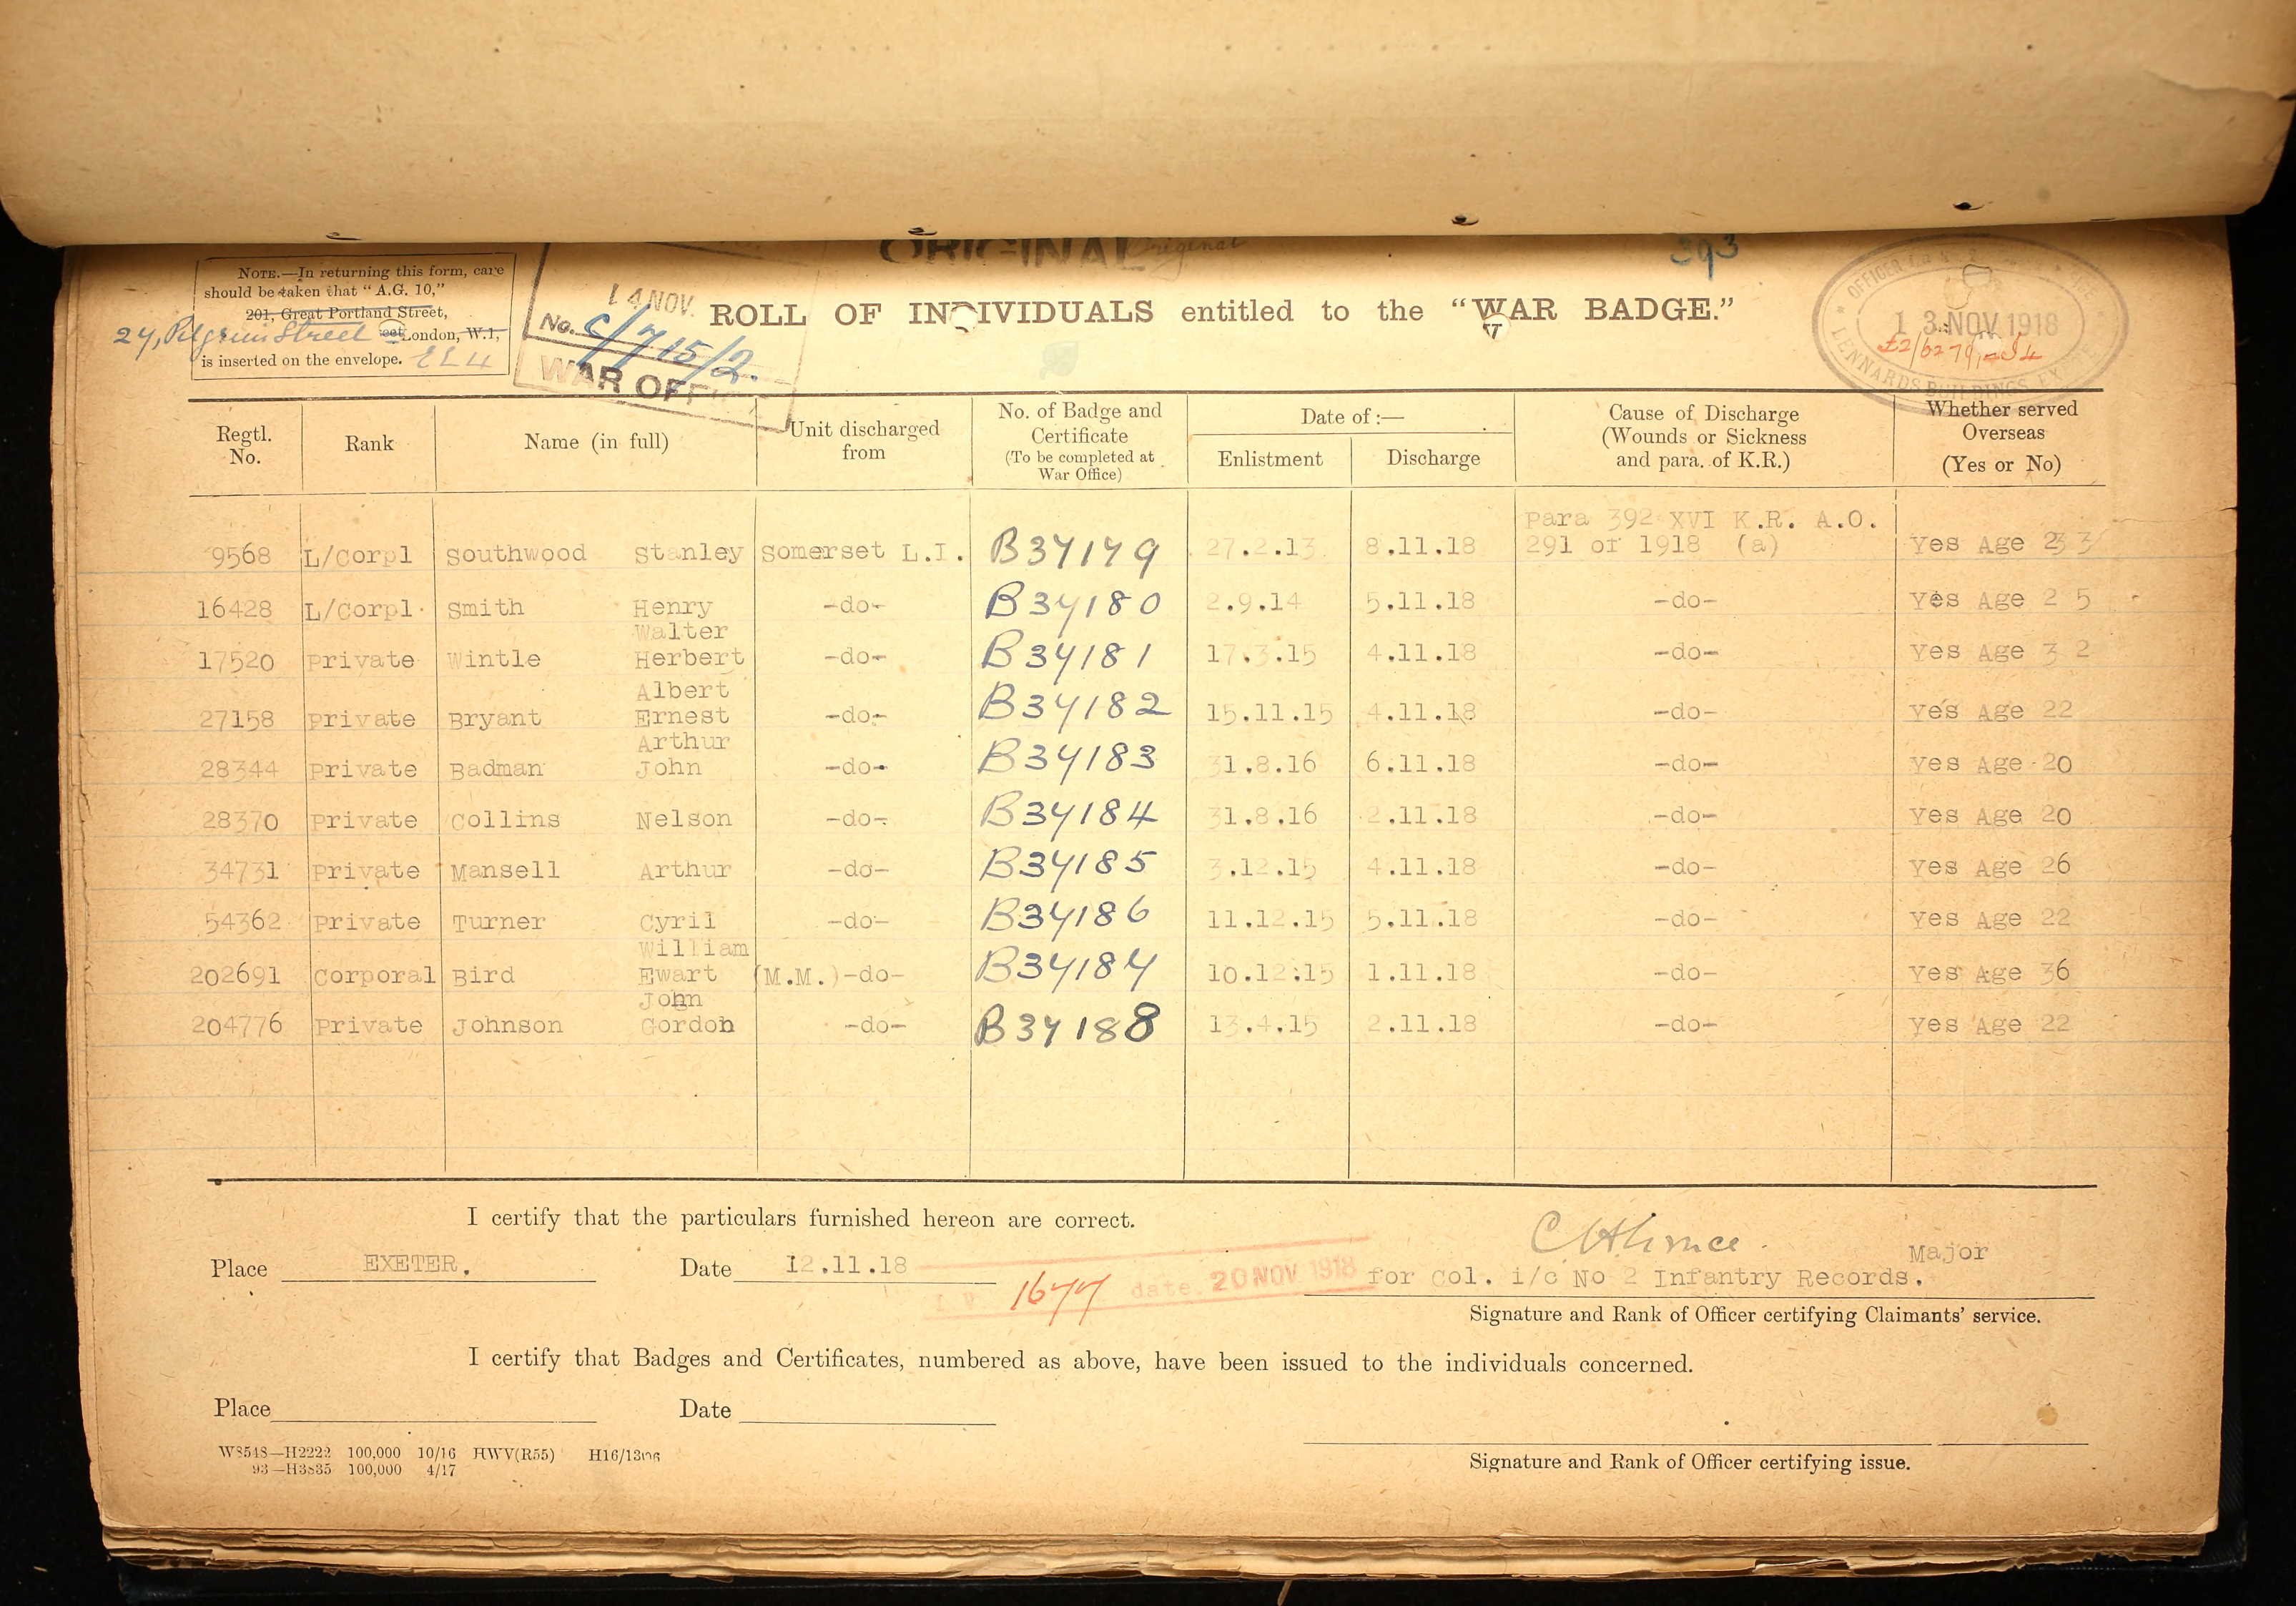 ORIGINAL Original
393
NOTE.—In returning this form, care
should be taken that "A.G. 10,"
201, Great Portland Street,
27, Pilgrim Street London, W.1,
is inserted on the envelope. EL4
14 NOV.
No. C/7/15/2.
WAR OFFICE
ROLL OF INDIVIDUALS entitled to the "WAR BADGE."
13 NOV 1918
LENNARDS BUILDINGS EXETER
Regtl. No. Rank Name (in full) Unit discharged from No. of Badge and Certificate (To be completed at War Office) Date of:— Enlistment Discharge Cause of Discharge (Wounds or Sickness and para. of K.R.) Whether served Overseas (Yes or No)
Para 392 XVI K.R. A.O.
9568 L/Corpl Southwood Stanley Somerset L.I. B37179 27.2.13 8.11.18 291 of 1918 (a) Yes Age 23
16428 L/Corpl Smith Henry -do- B37180 2.9.14 5.11.18 -do- Yes Age 2 5
Walter
17520 Private Wintle Herbert -do- B37181 17.3.15 4.11.18 -do- Yes Age 3 2
Albert
27158 Private Bryant Ernest -do- B37182 15.11.15 4.11.18 -do- Yes Age 22
Arthur
28344 Private Badman John -do- B37183 31.8.16 6.11.18 -do- Yes Age 20
28370 Private Collins Nelson -do- B37184 31.8.16 2.11.18 -do- Yes Age 20
34731 Private Mansell Arthur -do- B37185 3.12.15 4.11.18 -do- Yes Age 26
54362 Private Turner Cyril -do- B37186 11.12.15 5.11.18 -do- Yes Age 22
William
202691 Corporal Bird Ewart (M.M.) -do- B37187 10.12.15 1.11.18 -do- Yes Age 36
John
204776 Private Johnson Gordon -do- B37188 13.4.15 2.11.18 -do- Yes Age 22
I certify that the particulars furnished hereon are correct.
Place EXETER. Date 12.11.18
1677 date 20 NOV 1918
Major
for Col. i/c No 2 Infantry Records.
Signature and Rank of Officer certifying Claimants' service.
I certify that Badges and Certificates, numbered as above, have been issued to the individuals concerned.
Place Date
W8548—H2222 100,000 10/16 HWV(R55) H16/1306
93—H3835 100,000 4/17
Signature and Rank of Officer certifying issue.